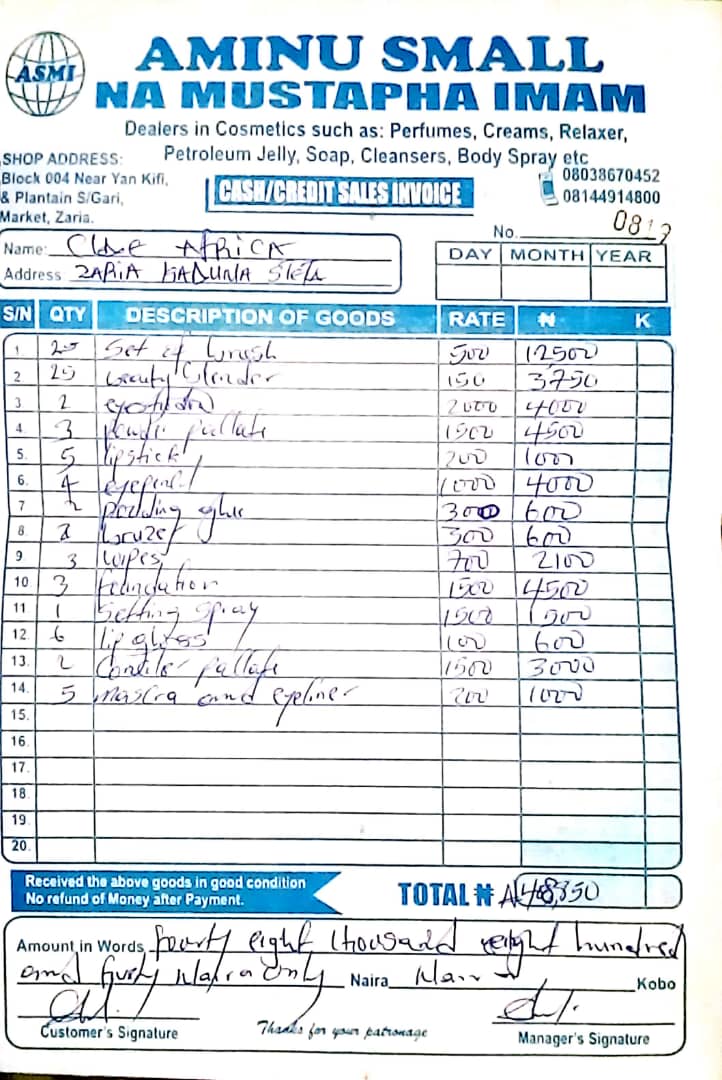 ASMI
AMINU SMALL
NA MUSTAPHA IMAM
Dealers in Cosmetics such as: Perfumes, Creams, Relaxer,
Petroleum Jelly, Soap, Cleansers, Body Spray etc
SHOP ADDRESS:
Block 004 Near Yan Kifi,
& Plantain S/Gari,
Market, Zaria.
CASH/CREDIT SALES INVOICE
08038670452
08144914800
No. 0817
Name: AFRICA
Address ZARIA KADUNA
DAY MONTH YEAR
S/N QTY DESCRIPTION OF GOODS RATE ₦ K
1 25 Set of brush 500 12500
2 25 beauty blender 150 3750
3 2 2000 4000
4. 3 pallate 1500 4500
5. 5 lipstick 200 1000
6. 4 1000 4000
7 2 300 600
8 2 300 600
9 3 wipes 700 2100
10 3 foundation 1500 4500
11 1 Setting Spray 1500 1500
12. 6 lip gloss 100 600
13. 2 pallate 1500 3000
14. 5 and eyeliner 200 1000
15.
16.
17.
18.
19.
20.
Received the above goods in good condition
No refund of Money after Payment.
TOTAL ₦ 48,350
Amount in Words eight thousand eight hundred
and Naira Only Naira Kobo
Customer's Signature
Thanks for your patronage
Manager's Signature